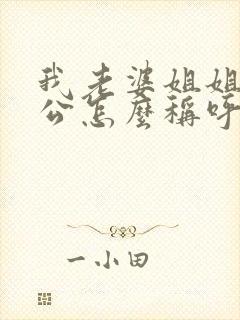 我老婆姐姐
公怎麼稱呼
一小田